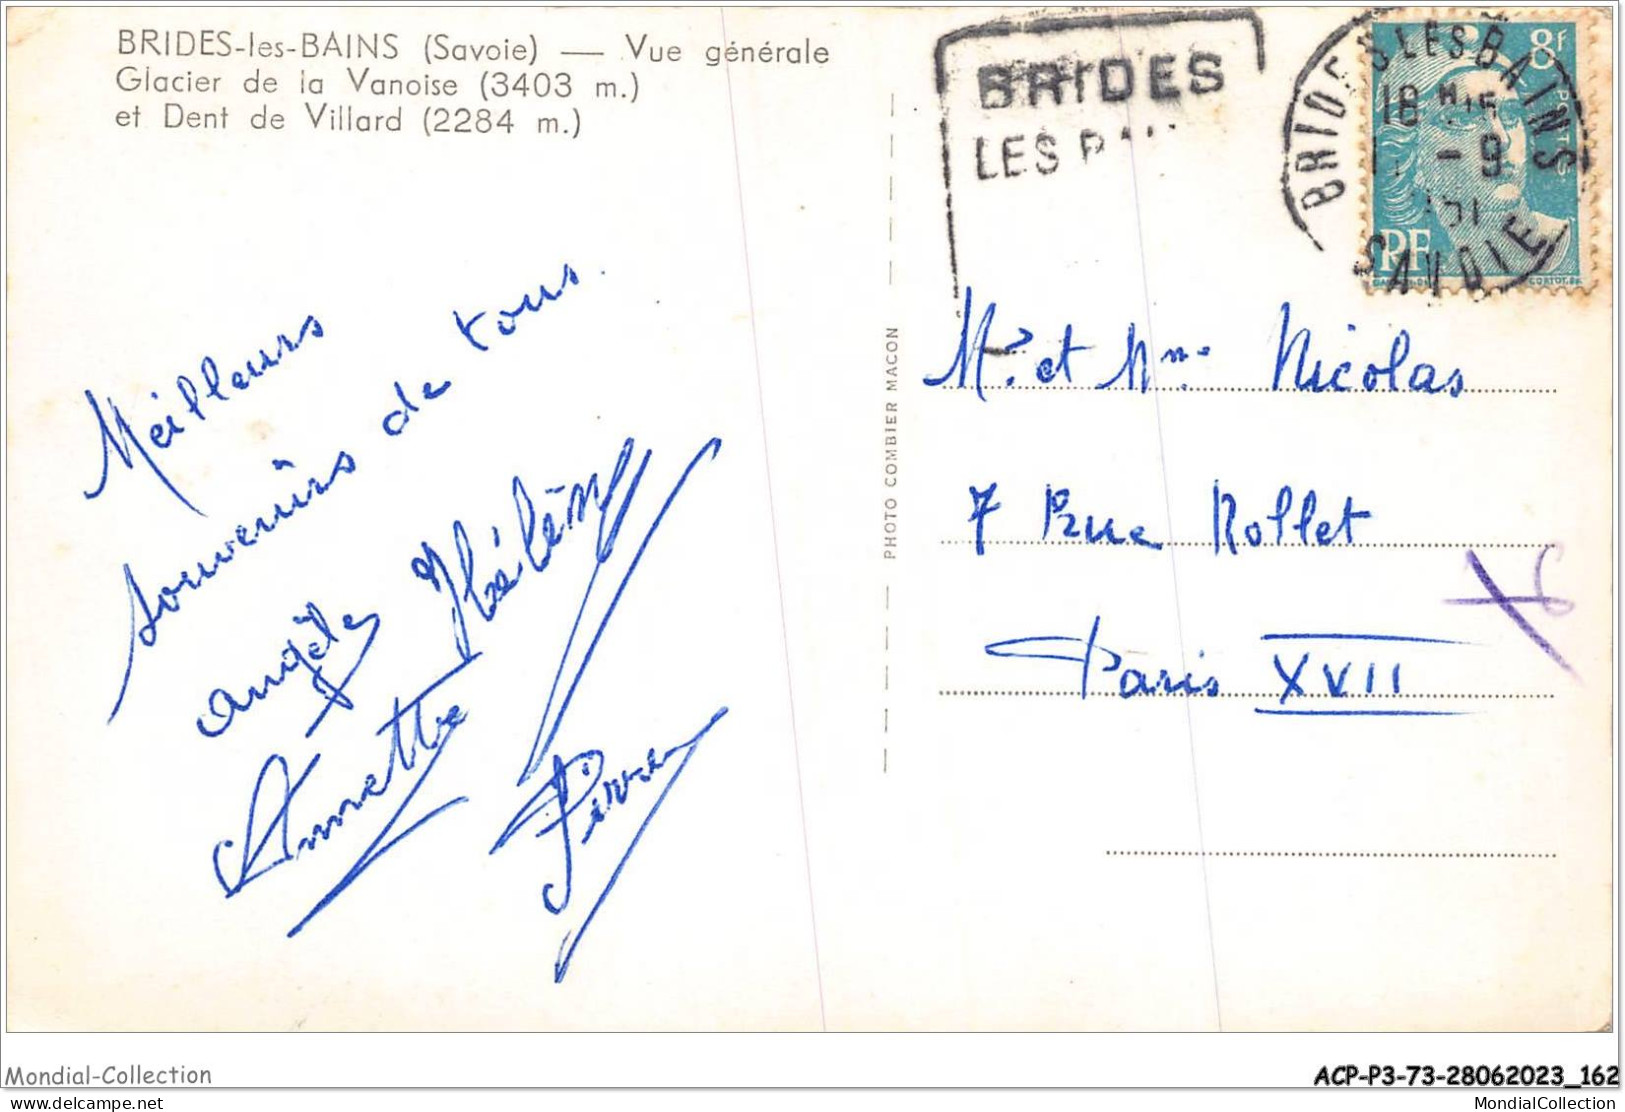 BRIDES-les-BAINS (Savoie) — Vue générale
Glacier de la Vanoise (3403 m.)
et Dent de Villard (2284 m.)
BRIDES
LES
BRIDES LES BAINS
18 H 15
-9
SAVOIE
8F
POSTES
RF
GANDON
CORTOT
Meilleurs
souvenirs de tous.
Angèle Hélène
Annette Pierre
PHOTO COMBIER MACON
Mr. et Mme. Nicolas
7 Rue Rollet
Paris XVII
Mondial-Collection
ACP-P3-73-28062023_162
delcampe.net
MondialCollection